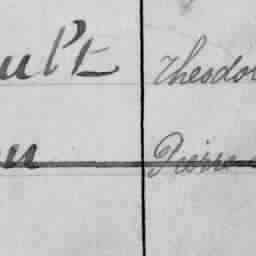 ult Theodor
u Pierre